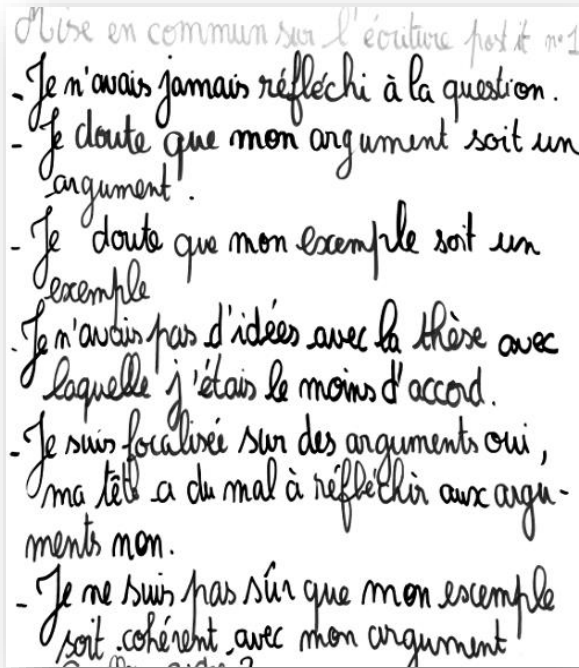 Mise en commun sur l'écriture post it n°1
- Je n'avais jamais réfléchi à la question.
- Je doute que mon argument soit un
argument.
- Je doute que mon exemple soit un
exemple
- Je n'avais pas d'idées avec la thèse avec
laquelle j'étais le moins d'accord.
- Je suis focalisée sur des arguments oui,
ma tête a du mal à réfléchir aux argu-
ments non.
- Je ne suis pas sûr que mon exemple
soit cohérent avec mon argument